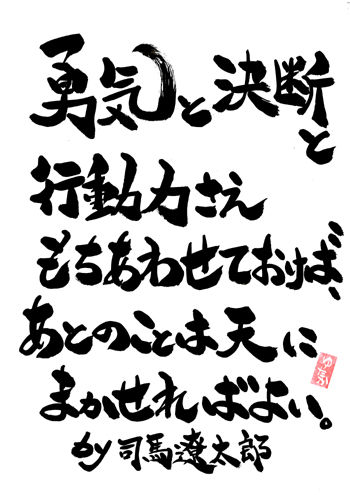 勇気と決断と
行動力さえ
もちあわせておけば、
あとのことは天に
まかせればよい。
by 司馬遼太郎
ゆたか